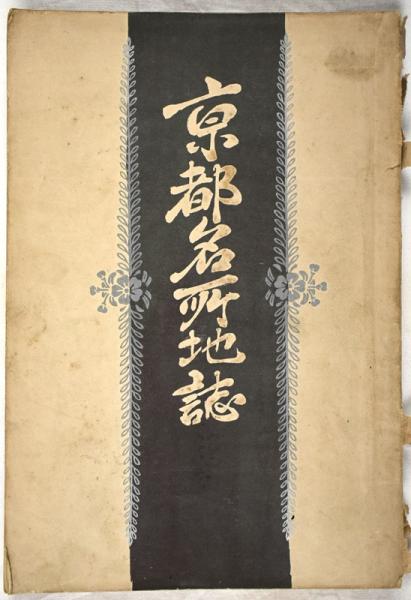 京都名所地誌